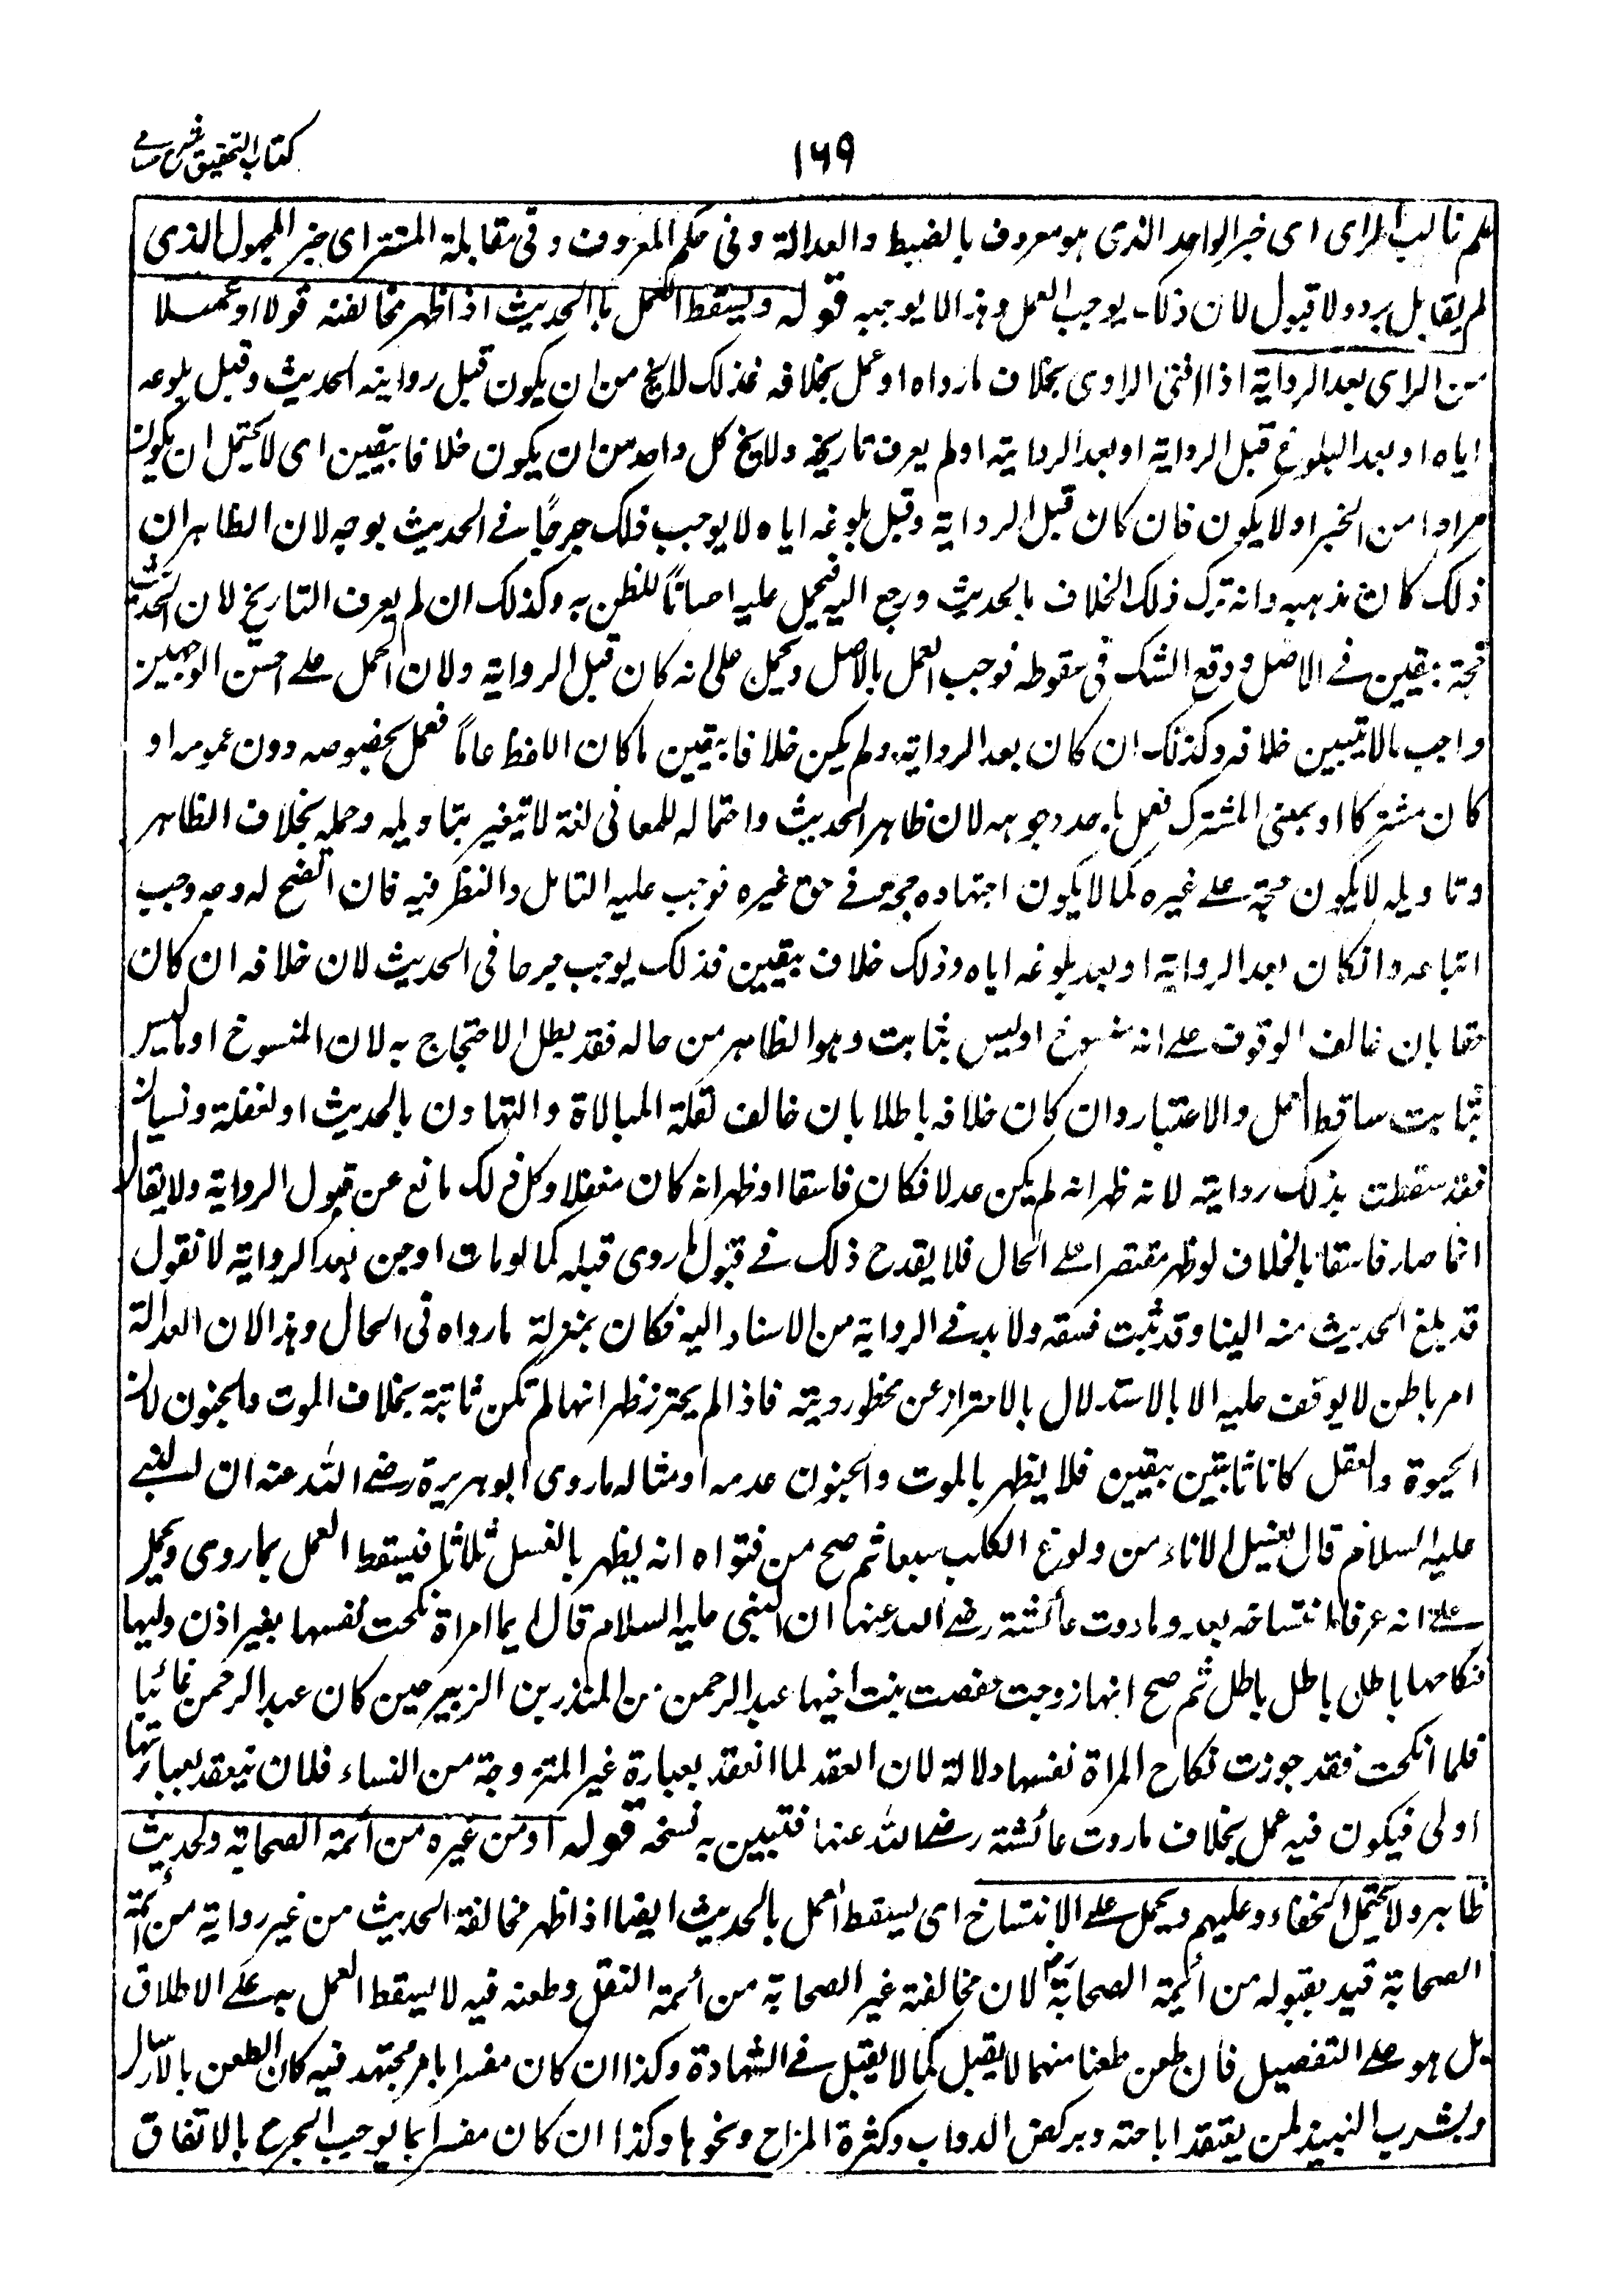 كتاب التحقيق شرح حسامی
١٦٩
علم غالب الرای ای خبر الواحد الذی هو معروف بالضبط والعدالة وفی حکم المعروف وفی مقابلة المستتر ای خبر المجهول الذی
لم یقابل برد ولا قبول لان ذلک یوجب العمل وهذا لا یوجبه قوله ویسقط العمل بالحدیث اذا ظهر مخالفته قولا او عملا
من الراوی بعد الروایة اذا افتی الراوی بخلاف ما رواه او عمل بخلافه فذلک لا یخ من ان یکون قبل روایته الحدیث وقبل بلوغه
ایاه او بعد البلوغ قبل الروایة او بعد الروایة او لم یعرف تاریخه ولا یخ کل واحد من ان یکون خلافا بیقین ای لا یحتمل ان یکون
مرادا من الخبر او لا یکون فان کان قبل الروایة وقبل بلوغه ایاه لا یوجب ذلک جرحًا فے الحدیث بوجه لان الظاهر ان
ذلک کان مذهبه وانه ترک ذلک الخلاف بالحدیث ورجع الیه فیحمل علیه احسانًا للظن به وکذلک ان لم یعرف التاریخ لان الحدیث
حجة بیقین فے الاصل ووقع الشک فی سقوطه فوجب العمل بالاصل ویحمل علی انه کان قبل الروایة ولان الحمل علے احسن الوجهین
واجب ما لا یتبین خلافه وکذلک ان کان بعد الروایة ولم یکن خلافا بیقین بان کان اللفظ عامًا فعمل بخصوصه دون عمومه او
کان مشترکا او بمعنی المشترک فعمل باحد وجوهه لان ظاهر الحدیث واحتماله للمعانی لغة لا یتغیر بتاویله وحمله بخلاف الظاهر
وتاویله لا یکون حجة علے غیره کما لا یکون اجتهاده حجة فے حق غیره فوجب علیه التامل والنظر فیه فان اتضح له وجه وجب
اتباعه وان کان بعد الروایة او بعد بلوغه ایاه وذلک خلاف بیقین فذلک یوجب جرحا فی الحدیث لان خلافه ان کان
حقا بان خالف الوقوف علے انه منسوخ او لیس بثابت وهو الظاهر من حاله فقد بطل الاحتجاج به لان المنسوخ او ما لیس
بثابت ساقط العمل والاعتبار وان کان خلافه باطلا بان خالف لقلة المبالاة والتهاون بالحدیث او لغفلة ونسیان
فقد سقطت بذلک روایته لانه ظهر انه لم یکن عدلا فکان فاسقا او ظهر انه کان مغفلا وکل ذلک مانع عن قبول الروایة ولا یقال
انما صار فاسقا بالخلاف لو ظهر مقتصرا علے الحال فلا یقدح ذلک فے قبول ما روی قبله کما لو مات او جن بعد الروایة لانا نقول
قد بلغ الحدیث منه الینا وقد ثبت فسقه ولا بد فے الروایة من الاسناد الیه فکان بمنزلة ما رواه فی الحال وهذا لان العدالة
امر باطن لا یوقف علیه الا بالاستدلال بالاحتراز عن محظور دینه فاذا لم یحترز ظهر انها لم تکن ثابتة بخلاف الموت والجنون لان
الحیوة والعقل کانا ثابتین بیقین فلا یظهر بالموت والجنون عدمه او مثاله ما روی ابو هریرة رضے الله عنه ان النبے
علیه السلام قال یغسل الاناء من ولوغ الکلب سبعا ثم صح من فتواه انه یطهر بالغسل ثلاثا فیسقط العمل بما روی ویحمل
علے انه عرف انتساخه بعد وما روت عائشة رضے الله عنها ان النبی علیه السلام قال ایما امراة نکحت نفسها بغیر اذن ولیها
فنکاحها باطل باطل باطل ثم صح انها زوجت حفصة بنت اخیها عبد الرحمن من المنذر بن الزبیر حین کان عبد الرحمن غائبا
فلما انکحت فقد جوزت نکاح المراة نفسها دلالة لان العقد لما انعقد بعبارة غیر المتزوجة من النساء فلان ینعقد بعبارتها
اولی فیکون فیه عمل بخلاف ما روت عائشة رضے الله عنها فتبین به نسخه قوله او من غیره من ائمة الصحابة والحدیث
ظاهر ولا یحتمل الخفاء علیهم ویحمل علے الانتساخ ای یسقط العمل بالحدیث ایضا اذا ظهر مخالفة الحدیث من غیر روایة من ائمة
الصحابة قید بقوله من ائمة الصحابة لان مخالفة غیر الصحابة من ائمة النقل وطعنه فیه لا یسقط العمل به علے الاطلاق
بل هو علے التفصیل فان طعن طعنا مبهما لا یقبل کما لا یقبل فے الشهادة وکذا ان کان مفسرا بامر مجتهد فیه کان الطعن بالارسال
وبشرب النبیذ لمن یعتقد اباحته وبرکض الدواب وکثرة المزاح ونحوها وکذا ان کان مفسرا بما یوجب الجرح بالاتفاق